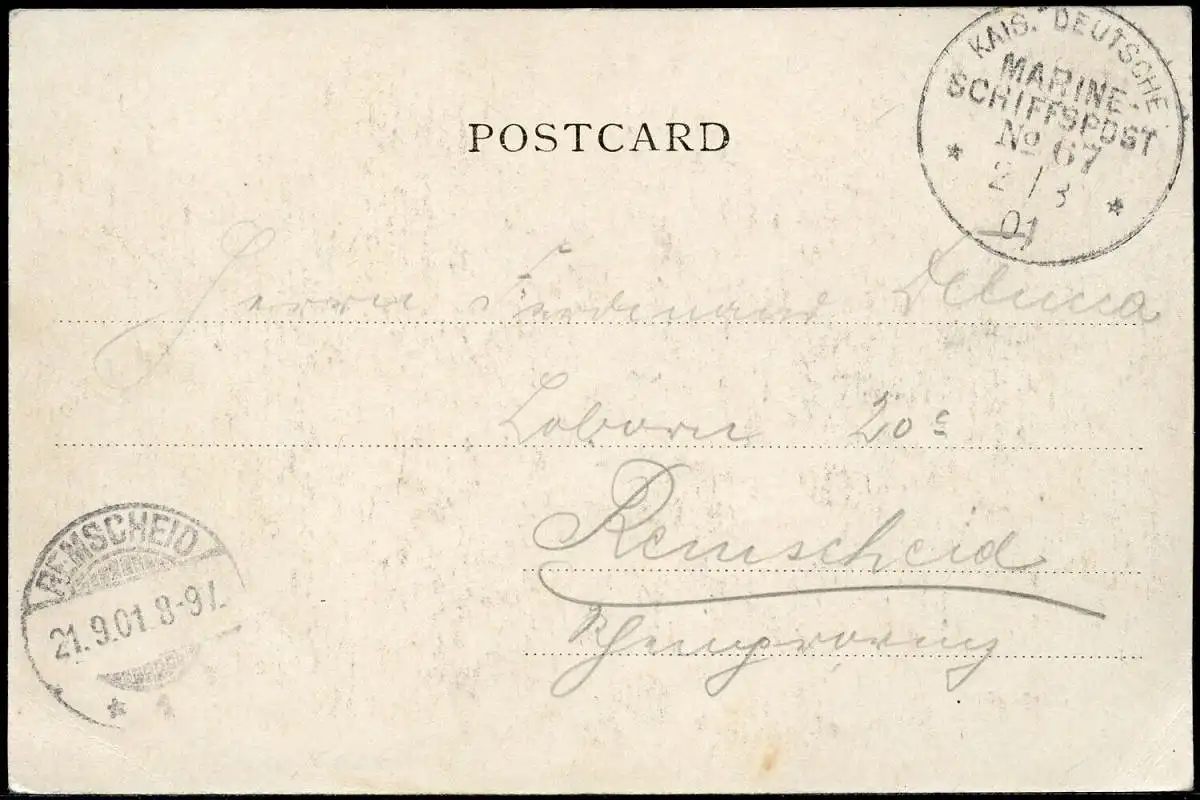 KAIS. DEUTSCHE
MARINE-
SCHIFFSPOST
No 67
2/8
01
POSTCARD
Herrn Ferdinand
Loborn 20c
Remscheid
Rheinprovinz
REMSCHEID
21.9.01.8-9V.